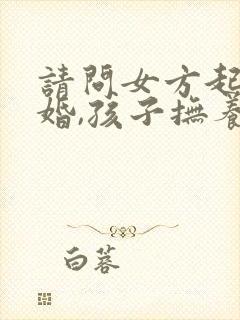 請問女方起
婚,孩子撫養
白蓉